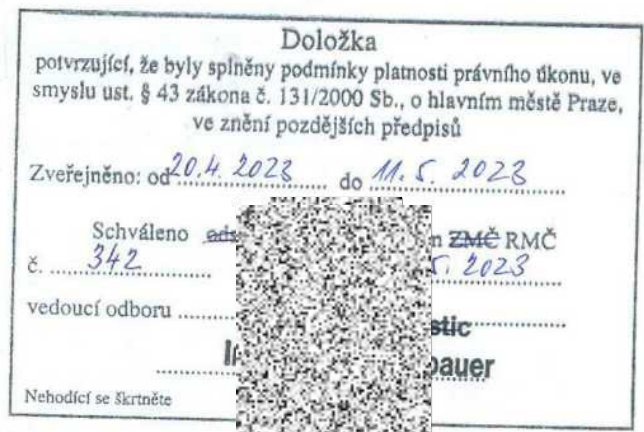 Doložka
potvrzující, že byly splněny podmínky platnosti právního úkonu, ve
smyslu ust. § 43 zákona č. 131/2000 Sb., o hlavním městě Praze,
ve znění pozdějších předpisů
Zveřejněno: od 20.4. 2023 do 11. 5. 2023
Schváleno ZMČ RMČ
č. 342 5. 2023
vedoucí odboru
Nehodící se škrtněte